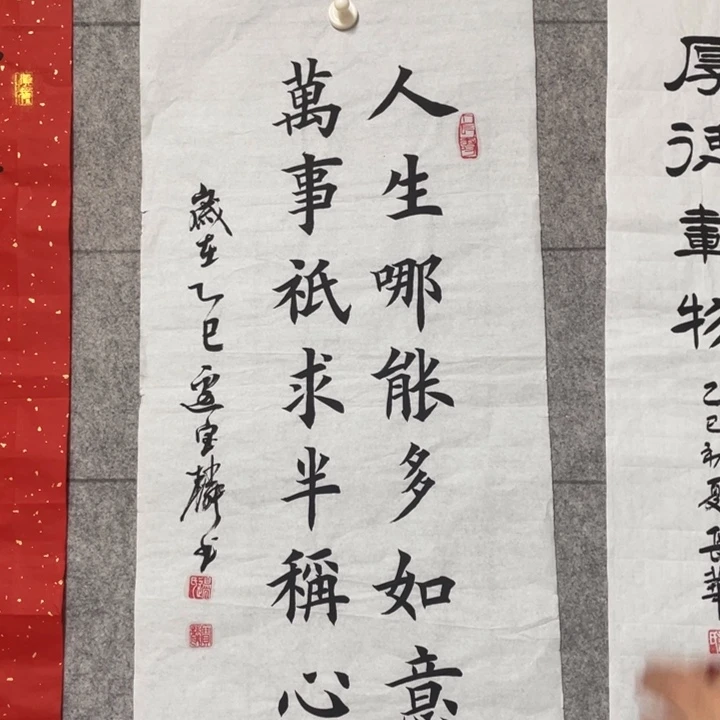 人生哪能多如意
萬事祇求半稱心
歲在乙巳邊宝麟书
厚德載物
乙巳初夏岳華